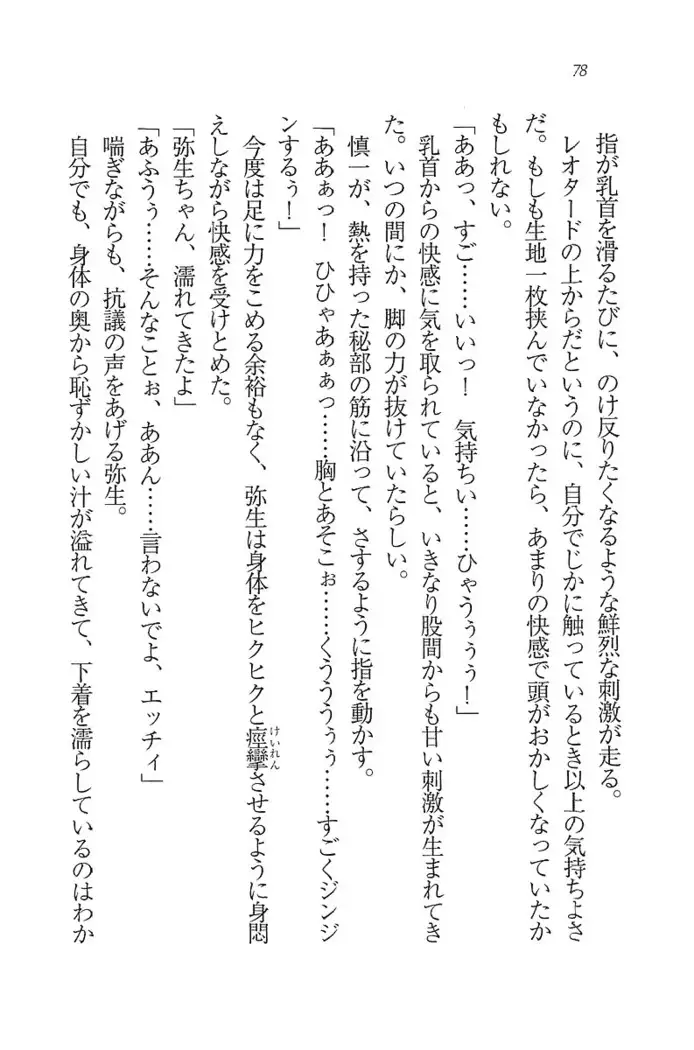 78
指が乳首を滑るたびに、のけ反りたくなるような鮮烈な刺激が走る。
レオタードの上からだというのに、自分でじかに触っているとき以上の気持ちよさ
だ。もしも生地一枚挟んでいなかったら、あまりの快感で頭がおかしくなっていたか
もしれない。
「ああっ、すご……いいっ！　気持ちい……ひゃうぅぅぅ！」
乳首からの快感に気を取られていると、いきなり股間からも甘い刺激が生まれてき
た。いつの間にか、脚の力が抜けていたらしい。
慎一が、熱を持った秘部の筋に沿って、さするように指を動かす。
「ああぁっ！　ひひゃあぁぁっ……胸とあそこぉ……くううぅぅ……すごくジンジ
ンするぅ！」
今度は足に力をこめる余裕もなく、弥生は身体をヒクヒクと痙攣させるように身悶
けいれん
えしながら快感を受けとめた。
「弥生ちゃん、濡れてきたよ」
「あふうぅ……そんなことぉ、ああん……言わないでよ、エッチィ」
喘ぎながらも、抗議の声をあげる弥生。
自分でも、身体の奥から恥ずかしい汁が溢れてきて、下着を濡らしているのはわか